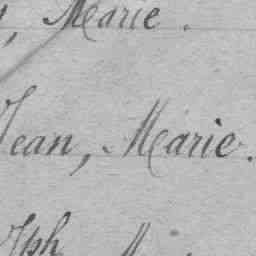 , Marie.
Jean, Marie.